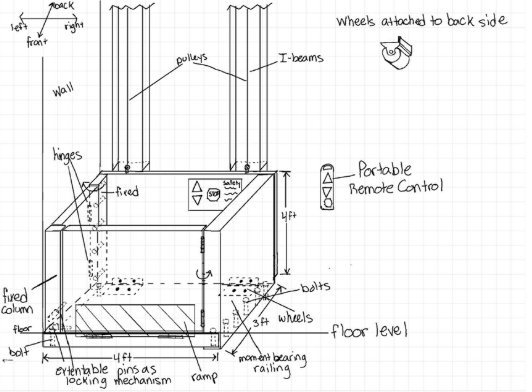 back
left
right
front
wheels attached to back side
pulleys
I-beams
wall
hinges
fixed
STOP
Safety
Portable
Remote Control
4ft
fixed
column
bolts
wheels
floor
floor level
3ft
bolt
4ft
moment bearing
railing
extentable pins as
locking mechanism
ramp